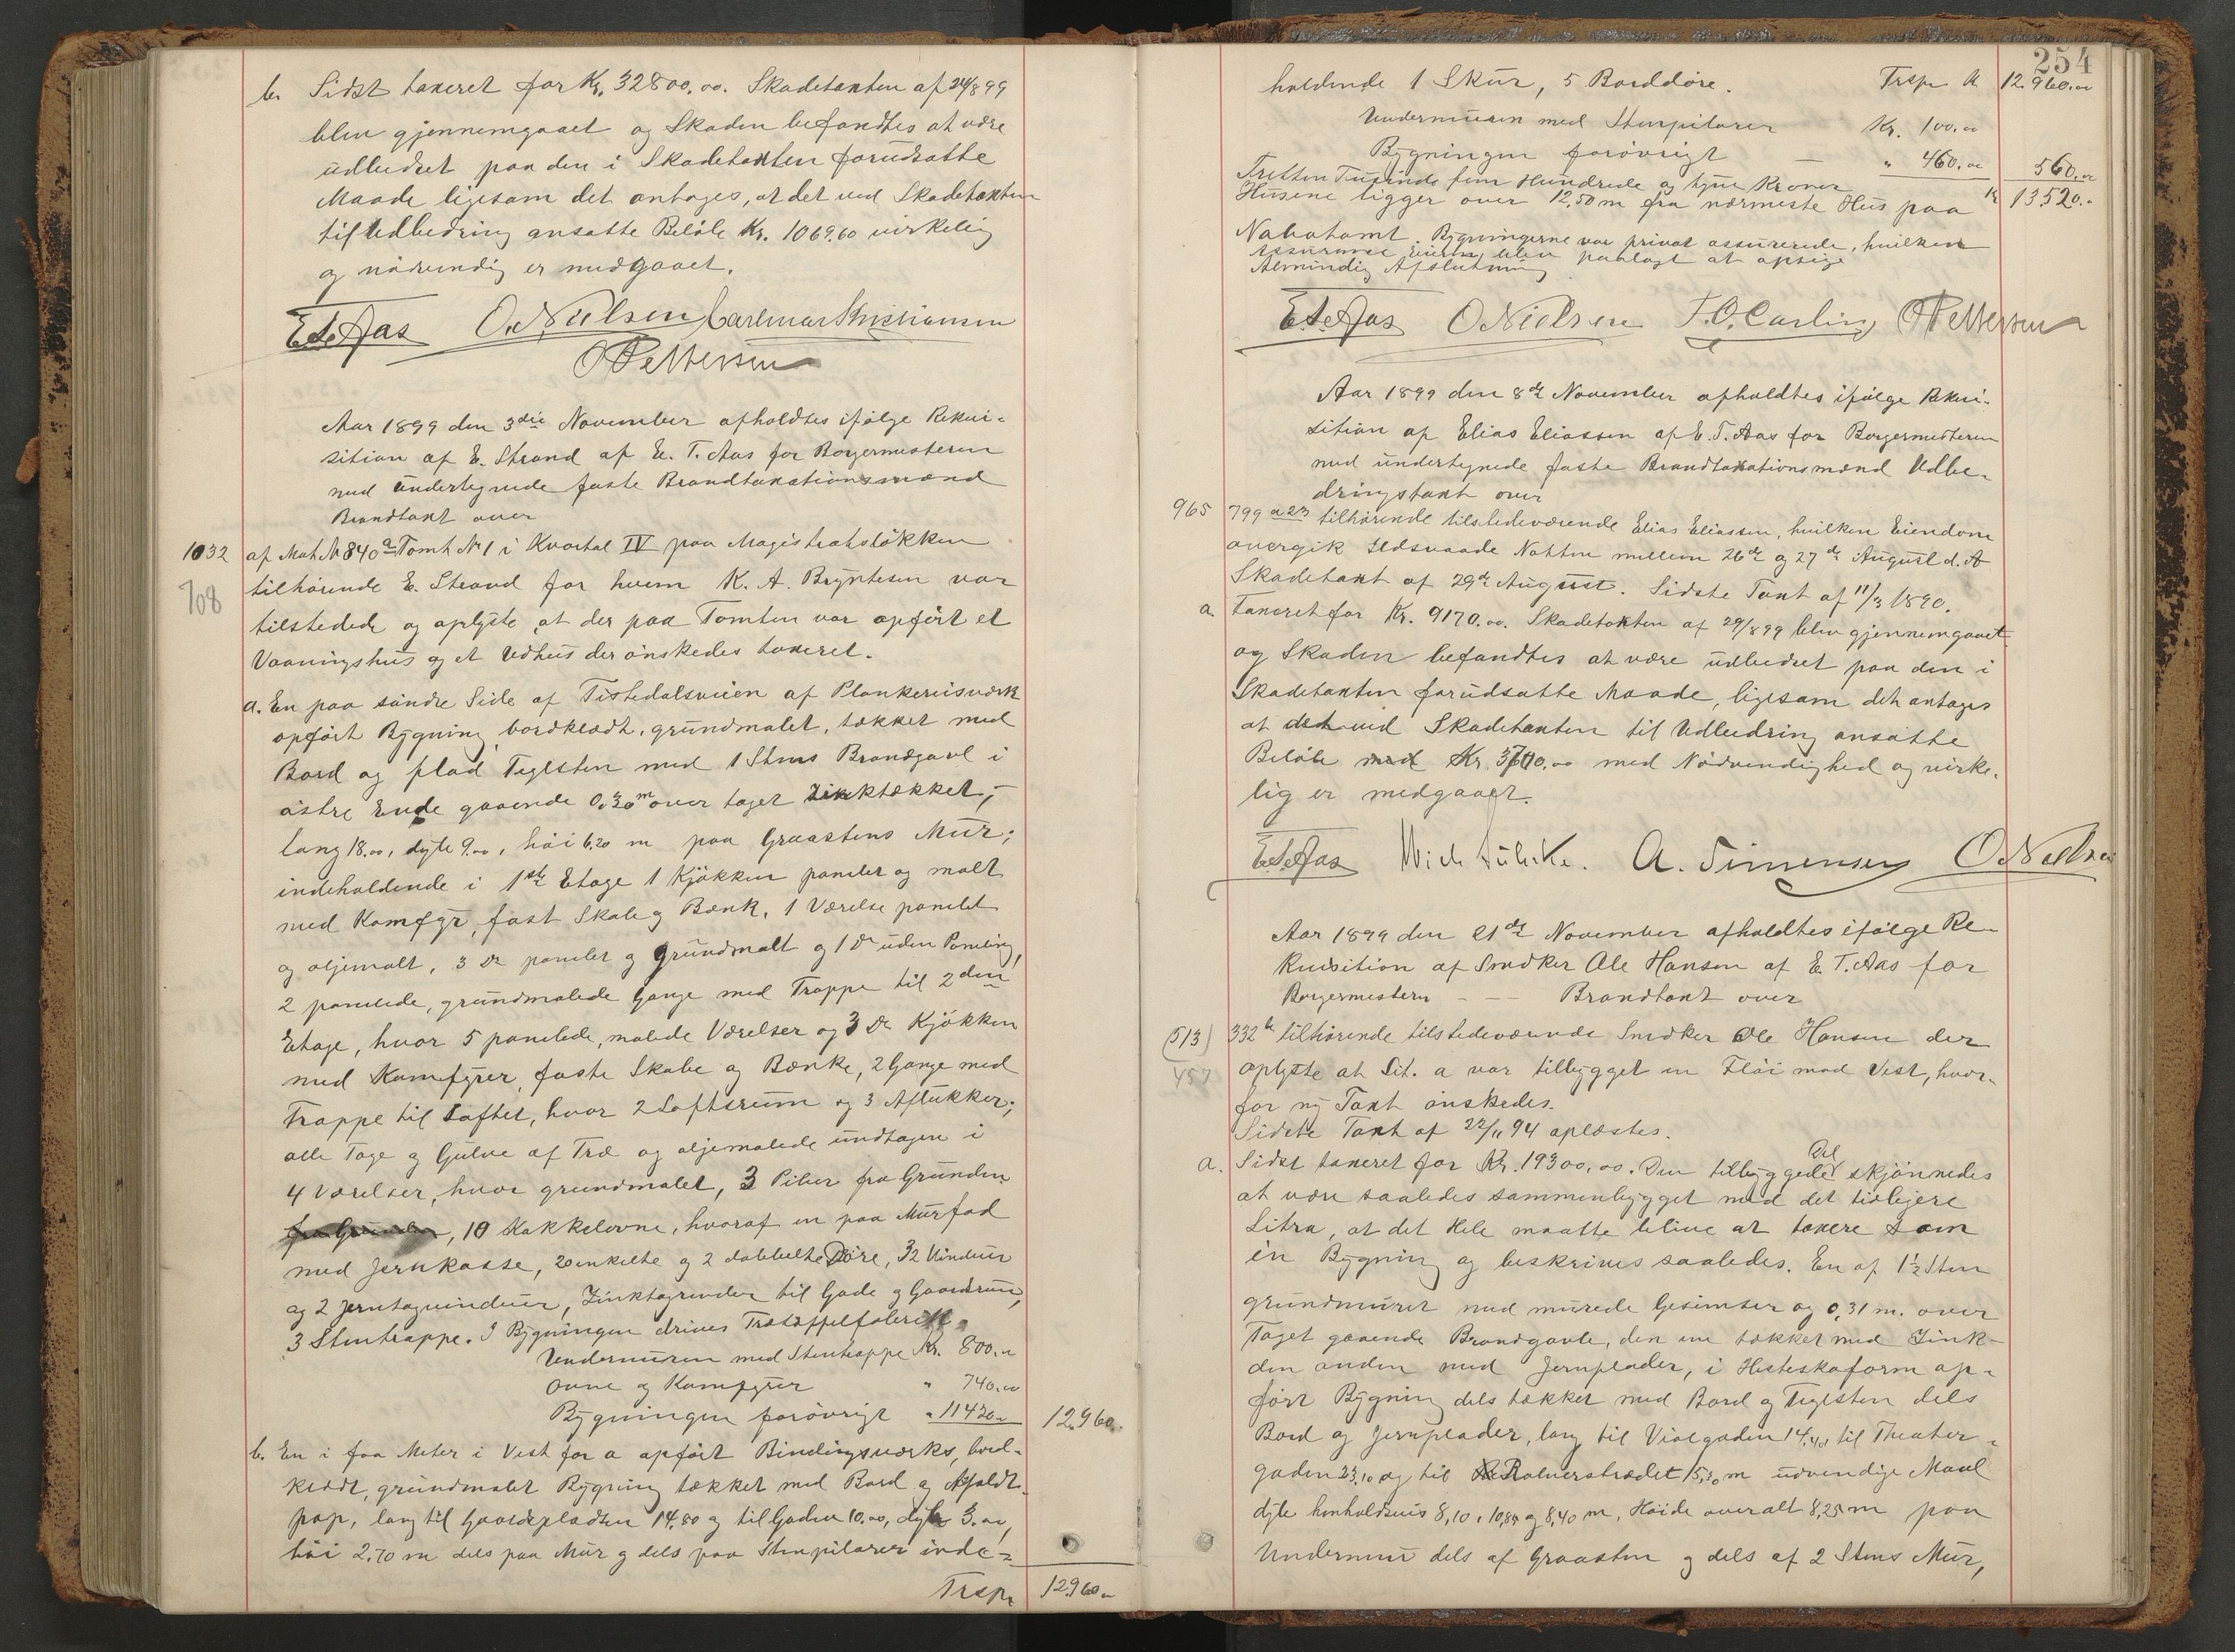 b. Sidst taxeret for Kr. 32800.00. Skadetaxten af 24/8 99
blev gjennemgaaet og Skaden befandtes at være
udbedret paa den i Skadetaxten forudsatte
Maade ligesom det antages, at det ved Skadetaxten
til Udbedring ansatte Beløb Kr. 1069.60 virkelig
og nødvendig er medgaaet.
E. T. Aas O. Nielsen Carlmar Kristiansen
O Pettersen
Aar 1899 den 3die November afholdtes ifølge Rekvi-
sition af E. Strand af E. T. Aas for Borgermesteren
med undertegnede faste Brandtaxationsmænd
Brandtaxt over
1032 af Mat. N 840a Tomt N 1 i Kvartal IV paa Magistratsløkken
708 tilhørende E. Strand for hvem K. A. Bryntesen var
tilstede og oplyste, at der paa Tomten var opført et
Vaaningshus og et Vedhus der ønskedes taxeret.
a. En paa søndre Side af Tistedalsveien af Plankereisværk
opført Bygning bordklædt, grundmalet, tækket med
Bord og flad Teglsten med 1 Stens Brandgavl i
østre Ende gaaende 0.30 m over taget Zinktækket,
lang 18.00, dyb 9.00, høi 6.20 m paa Graastens Mur;
indeholdende i 1ste Etage 1 Kjøkken panelet og malt
med Komfyr, fast Skab og Bænk, 1 Værelse panelet
og oljemalt, 3 Do panelet og grundmalt og 1 Do uden Paneling,
2 panelede, grundmalede Gange med Trappe til 2den
Etage, hvor 5 panelede, malede Værelser og 3 Do Kjøkken
med Komfyrer, faste Skabe og Bænke, 2 Gange med
Trappe til Loftet, hvor 2 Loftsrum og 3 Aflukker;
alle Tage og Gulve af Træ og oljemalede undtagen i
4 Værelser, hvor grundmalet, 3 Piber fra Grunden
fra Grunden, 10 Kakkelovne, hvoraf en paa Murfod
med Jernkasse, 20 enkelte og 2 dobbelte Døre, 32 Vinduer
og 2 Jerntagvinduer, Zinktagrender til Gade og Gaardsrum,
3 Stentrappe. I Bygningen drives Trætøffelfabrik
Undermuren med Stentrappe Kr. 800.00
Ovne og Komfyrer " 740.00
Bygningen forøvrigt " 11420.00 12.960.
b. En i faa Meter i Vest for a opført Bindingsværks, bord-
klædt, grundmalet Bygning tækket med Bord og Asfalt-
pap, lang til Gaardspladsen 14.80 og til Gaden 10.00, dyb 3.00,
høi 2.70 m dels paa Mur og dels paa Stenpilarer inde-
Trsp. 12960.00
254
holdende 1 Skur, 5 Borddøre. Trsp. Kr 12.960.00
Undermuren med Stenpilarer Kr. 100.00
Bygningen forøvrigt — " 460.00 560.00
Tretten Tusinde fem Hundrede og tyve Kroner Kr 13520.
Husene ligger over 12,50 m fra nærmeste Hus paa
Nabotomt. Bygningerne var privat assurerede, hvilken
Assurance Eieren blev paalagt at opsige
Almindig Afslutning
E. T. Aas O Nielsen T. O. Carling O Pettersen
Aar 1899 den 8de November afholdtes ifølge Rekvi-
sition af Elias Eliassen af E. T. Aas for Borgermesteren
med undertegnede faste Brandtaxationsmænd Udbe-
dringstaxt over
965 799 a 23 tilhørende tilstedeværende Elias Eliassen, hvilken Eiendom
overgik Ildsvaade Natten mellem 26de og 27de August d. A
Skadetaxt af 29de August. Sidste Taxt af 11/3 1890.
a. Taxeret for Kr. 9170.00. Skadetaxten af 29/8 99 blev gjennemgaaet
og Skaden befandtes at være udbedret paa den i
Skadetaxten forudsatte Maade, ligesom det antages
at det ved Skadetaxten til Udbedring ansatte
Beløb med Kr. 3700.00 med Nødvendighed og virke-
lig er medgaaet.
E. T. Aas A. Simensen O Nielsen
Aar 1899 den 21de November afholdtes ifølge Re-
kvisition af Snedker Ole Hansen af E. T. Aas for
Borgermesteren - — Brandtaxt over
(513) 332 b tilhørende tilstedeværende Snedker Ole Hansen der
457 oplyste at Lit. a var tilbygget en Fløi mod Vest, hvor-
for ny Taxt ønskedes.
Sidste Taxt af 22/11 94 oplæstes.
a. Sidst taxeret for Kr. 19300.00. Den tilbyggede Del skjønnedes
at være saaledes sammenbygget med det tidligere
Litra, at det Hele maatte blive at taxere som
én Bygning og beskrives saaledes. En af 1½ Sten
grundmuret med murede Gesimser og 0,31 m. over
Taget gaaende Brandgavle, den ene tækket med Zink-
den anden med Jernplader, i Hesteskoform op-
ført Bygning dels tækket med Bord og Teglsten dels
Bord og Jernplader, lang til Violgaden 14,40 til Theater-
gaden 23,10 og til Ralverstrædet 15,30 m udvendige Maal
dybe henholdsvis 8,10, 10,85 og 8,40 m, Høide overalt 8,25 m paa
Undermur dels af Graasten og dels af 2 Stens Mur,